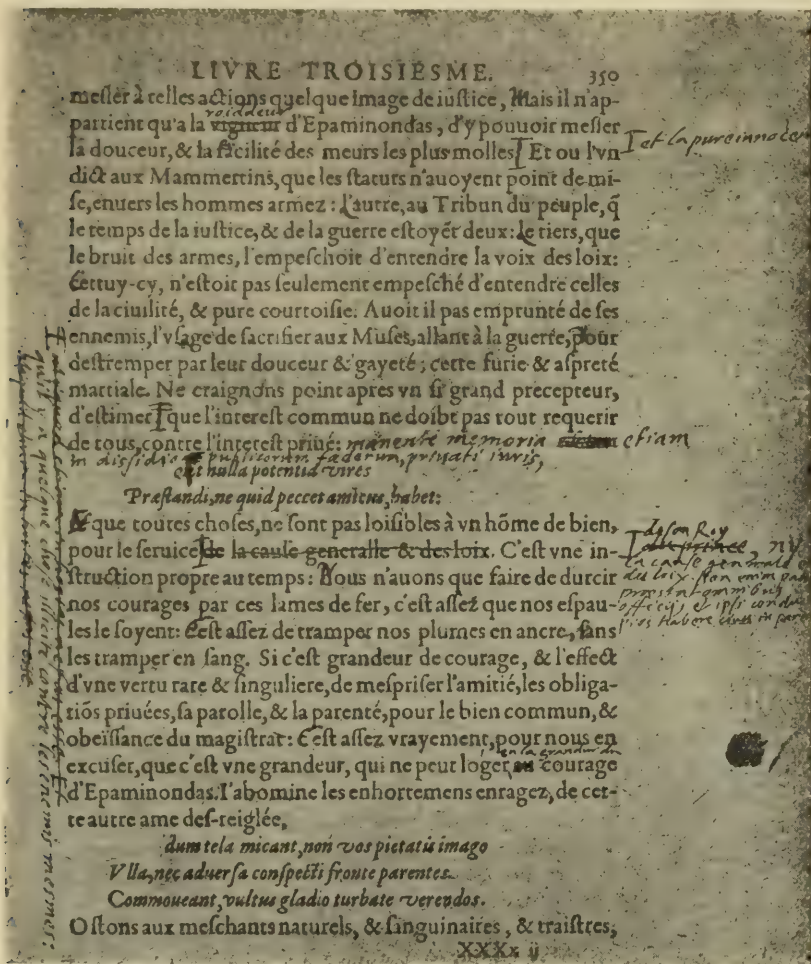 LIVRE TROISIESME. 350
mesler à telles actions quelque image de iustice, Mais il n'ap-
roiddeur
partient qu'a la vigueur d'Epaminondas, d'y pouuoir mesler
la douceur, & la facilité des meurs les plus molles Et ou l'vn
et la pure innocen
dict aux Mammertins, que les statuts n'auoyent point de mi-
se, enuers les hommes armez: L'autre, au Tribun du peuple, q̃
le temps de la iustice, & de la guerre estoyẽt deux: Le tiers, que
le bruit des armes, l'empeschoit d'entendre la voix des loix:
Cettuy-cy, n'estoit pas seulement empesché d'entendre celles
de la ciuilité, & pure courtoisie. Auoit il pas emprunté de ses
ennemis, l'vsage de sacrifier aux Muses, allant à la guerre, pour
destremper par leur douceur & gayeté; cette furie & aspreté
martiale. Ne craignons point apres vn si grand precepteur,
d'estimer que l'interest commun ne doibt pas tout requerir
de tous, contre l'interest priué: manente memoria etiam
in dissidio publicorum fœderum, priuati iuris,
et nulla potentia vires
Præstandi, ne quid peccet amicus, habet:
& que toutes choses, ne sont pas loisibles à vn hõme de bien,
pour le seruice de la cause generalle & des loix. C'est vne in-
de son Roy
ny
la cause generale
des loix. Non enim pa
præstat omnibus
officiis, et ipsi condu
pios habere ciues in pare
struction propre au temps: Nous n'auons que faire de durcir
nos courages par ces lames de fer, c'est assez que nos espau-
les le soyent: C'est assez de tramper nos plumes en ancre, sans
les tramper en sang. Si c'est grandeur de courage, & l'effect
d'vne vertu rare & singuliere, de mespriser l'amitié, les obliga-
tiõs priuées, sa parolle, & la parenté, pour le bien commun, &
obeïssance du magistrat: C'est assez vrayement, pour nous en
en la grandeur du
excuser, que c'est vne grandeur, qui ne peut loger au courage
d'Epaminondas. I'abomine les enhortemens enragez, de cet-
te autre ame des-reiglée,
dum tela micant, non vos pietatis imago
Vlla, nec aduersa conspecti fronte parentes
Commoueant, vultus gladio turbate verendos.
Ostons aux meschants naturels, & sanguinaires, & traistres,
XXXx ij
quil y a quelque chose illicite contre les ennemis mesmes: